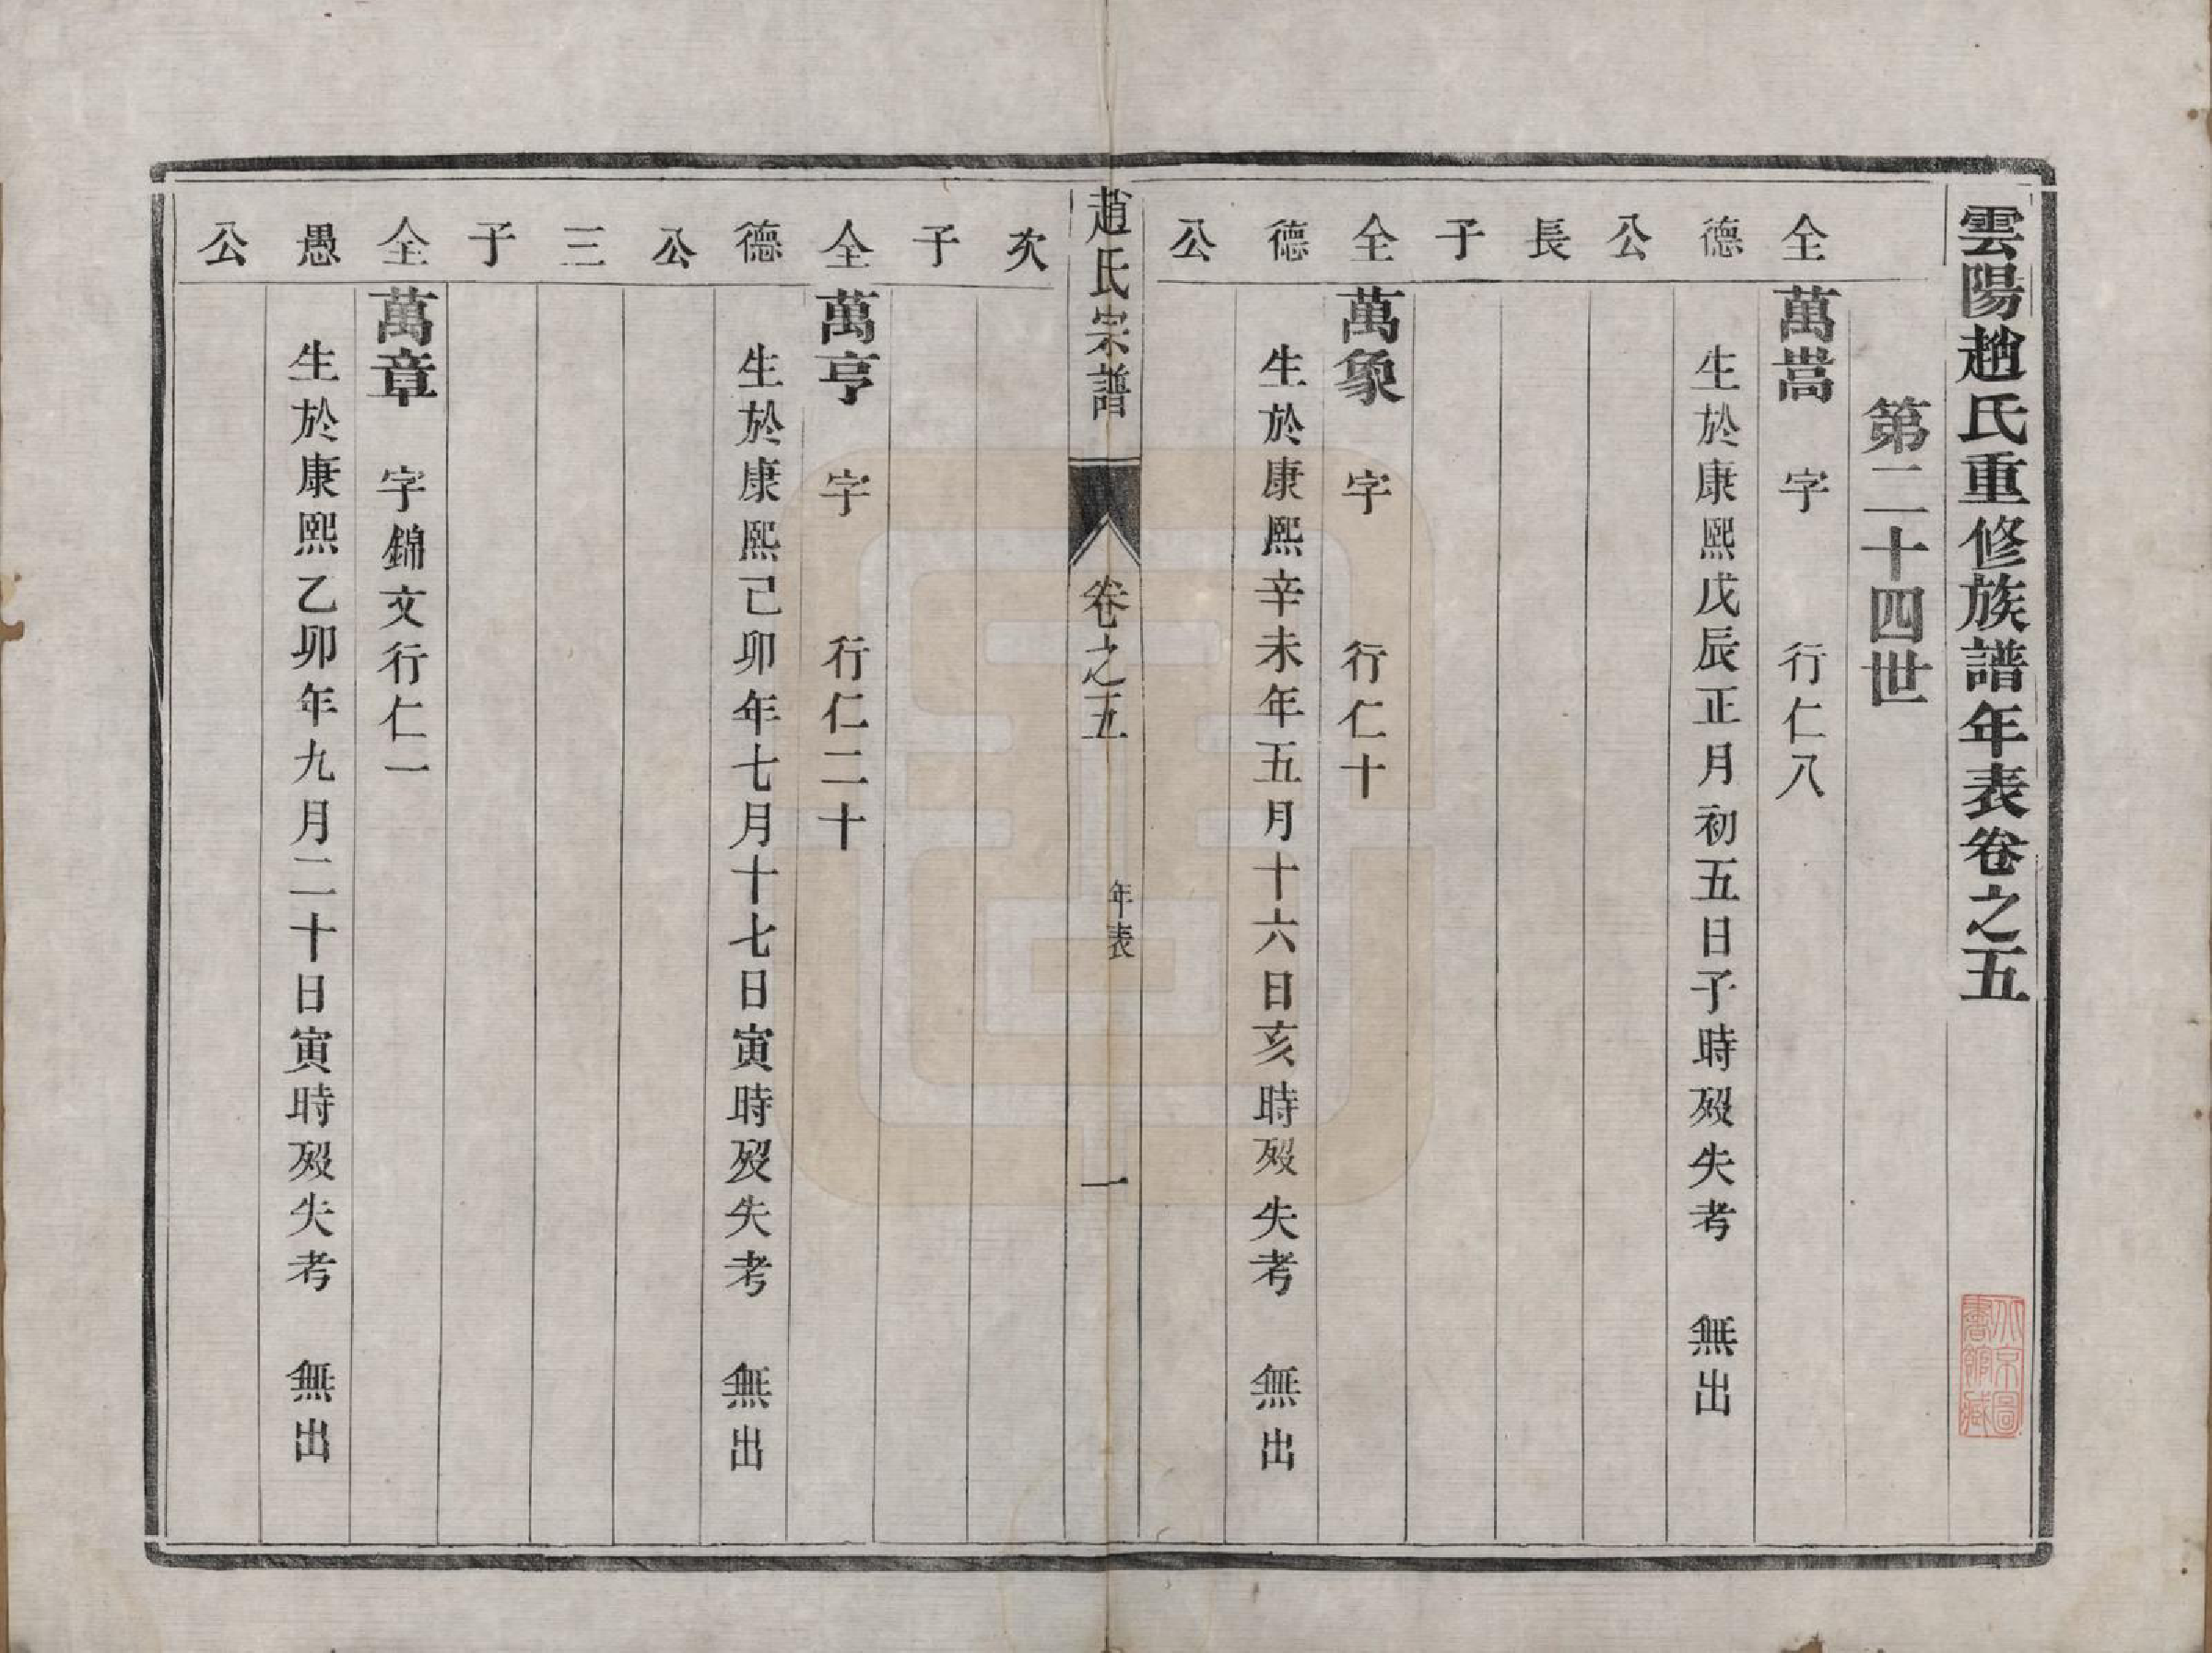 雲陽趙氏重修族譜年表卷之五
第二十四世
全德公長子
萬嵩　字　行仁八
生於康熙戊辰正月初五日子時歿失考　無出
全德公次子
萬象　字　行仁十
生於康熙辛未年五月十六日亥時歿失考　無出
趙氏宗譜　卷之五　年表　一
全德公三子
萬亨　字　行仁二十
生於康熙己卯年七月十七日寅時歿失考　無出
全愚公
萬章　字錦文行仁一
生於康熙乙卯年九月二十日寅時歿失考　無出
北京圖
書館藏